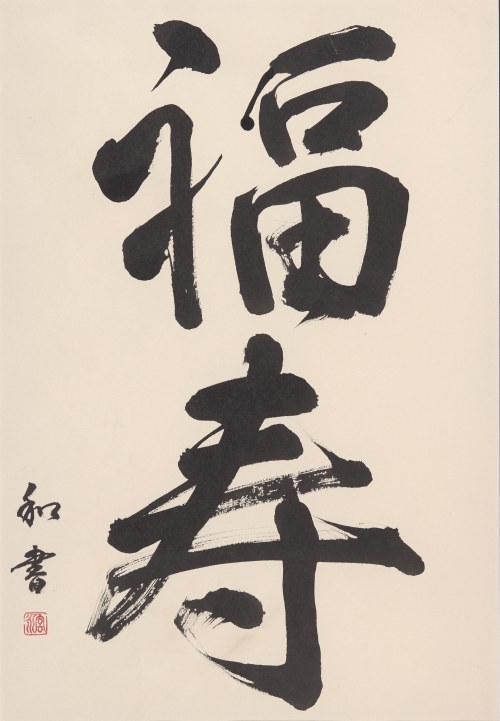 福寿
和書